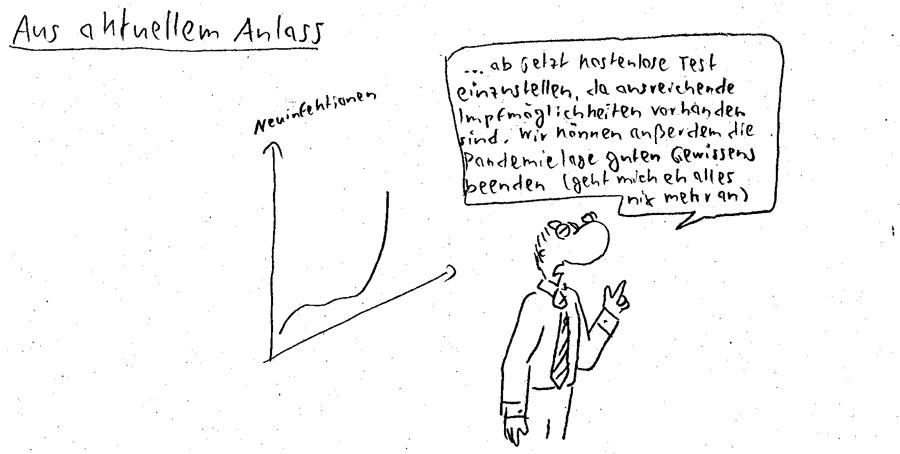 Aus aktuellem Anlass
Neuinfektionen
... ab jetzt kostenlose Test
einzustellen, da ausreichende
Impfmöglichkeiten vorhanden
sind. Wir können außerdem die
Pandemielage guten Gewissens
beenden (geht mich eh alles
nix mehr an)